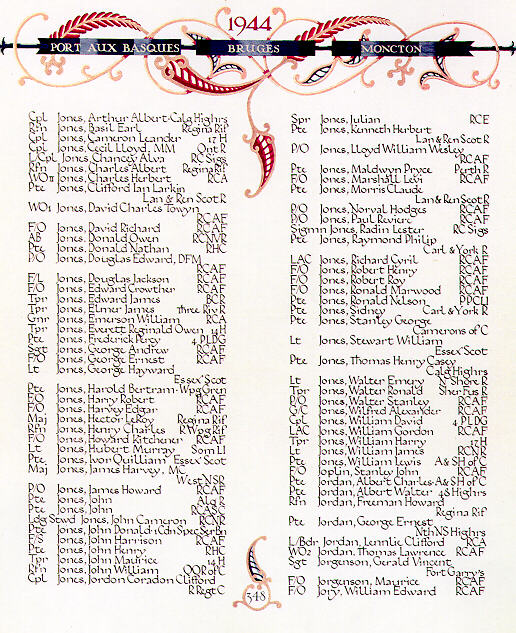 1944
PORT AUX BASQUES BRUGES MONCTON
Cpl Jones, Arthur Albert-Calg Highrs
Rfn Jones, Basil Earl Regina Rif
Cpl Jones, Cameron Leander 17 H
Cpl Jones, Cecil Lloyd, MM Ont R
L/Cpl Jones, Chancey Alva RC Sigs
Rfn Jones, Charles Albert Regina Rif
WO II Jones, Charles Herbert RCA
Pte Jones, Clifford Ian Larkin
Lan & Ren Scot R
WO1 Jones, David Charles Towyn
RCAF
F/O Jones, David Richard RCAF
AB Jones, Donald Owen RCNVR
Pte Jones, Donald Nathan RHC
P/O Jones, Douglas Edward, DFM
RCAF
F/L Jones, Douglas Jackson RCAF
F/O Jones, Edward Crowther RCAF
Tpr Jones, Edward James BCR
Tpr Jones, Elmer James Three Riv R
Gnr Jones, Emerson William RCA
Tpr Jones, Everett Reginald Owen 14 H
Pte Jones, Frederick Percy 4 PLDG
Sgt Jones, George Andrew RCAF
F/O Jones, George Ernest RCAF
Lt Jones, George Hayward
Essex Scot
Pte Jones, Harold Bertram-Wpg Gren
F/O Jones, Harry Robert RCAF
F/O Jones, Harvey Edgar RCAF
Maj Jones, Hector LeRoy Regina Rif
Rfn Jones, Henry Charles R Wpg Rif
F/O Jones, Howard Kitchener RCAF
Lt Jones, Hubert Murray Som LI
Pte Jones, Ivor Quilliam Essex Scot
Maj Jones, James Harvey, MC
West NSR
P/O Jones, James Howard RCAF
Pte Jones, John Alq R
Pte Jones, John RCASC
Ldg Stwd Jones, John Cameron RCNR
Pte Jones, John Donald-1 Cdn Spec Ser Bn
F/S Jones, John Harrison RCAF
Pte Jones, John Henry RHC
Tpr Jones, John Maurice 14 H
Rfn Jones, John William QOR of C
Cpl Jones, Jordon Coradon Clifford
R Regt C
Spr Jones, Julian RCE
Pte Jones, Kenneth Herbert
Lan & Ren Scot R
P/O Jones, Lloyd William Wesley
RCAF
Pte Jones, Maldwyn Pryce Perth R
F/O Jones, Marshall Levi RCAF
Pte Jones, Morris Claude
Lan & Ren Scot R
P/O Jones, Norval Hodges RCAF
P/O Jones, Paul Reviere RCAF
Sigmn Jones, Radin Lester RC Sigs
Pte Jones, Raymond Philip
Carl & York R
LAC Jones, Richard Cyril RCAF
F/O Jones, Robert Henry RCAF
F/O Jones, Robert Roy RCAF
F/O Jones, Ronald Marwood RCAF
Pte Jones, Ronald Nelson PPCLI
Pte Jones, Sidney Carl & York R
Pte Jones, Stanley George
Camerons of C
Lt Jones, Stewart William
Essex Scot
Pte Jones, Thomas Henry Casey
Calg Highrs
Lt Jones, Walter Emery N Shore R
Tpr Jones, Walter Ronald Sher Fus R
P/O Jones, Walter Stanley RCAF
G/C Jones, Wilfred Alexander RCAF
Cpl Jones, William David 4 PLDG
LAC Jones, William Gordon RCAF
Tpr Jones, William Harry 17 H
Lt Jones, William James RCNR
Pte Jones, William Lewis A & SH of C
F/O Joplin, Stanley John RCAF
Pte Jordan, Albert Charles-A & SH of C
Pte Jordan, Albert Walter 48 Highrs
Rfn Jordan, Freeman Howard
Regina Rif
Pte Jordan, George Ernest
Nth NS Highrs
L/Bdr Jordan, Lennlie Clifford RCA
WO2 Jordan, Thomas Lawrence RCAF
Sgt Jorgenson, Gerald Vincent
Fort Garry's
F/O Jorgenson, Maurice RCAF
F/O Jory, William Edward RCAF
348